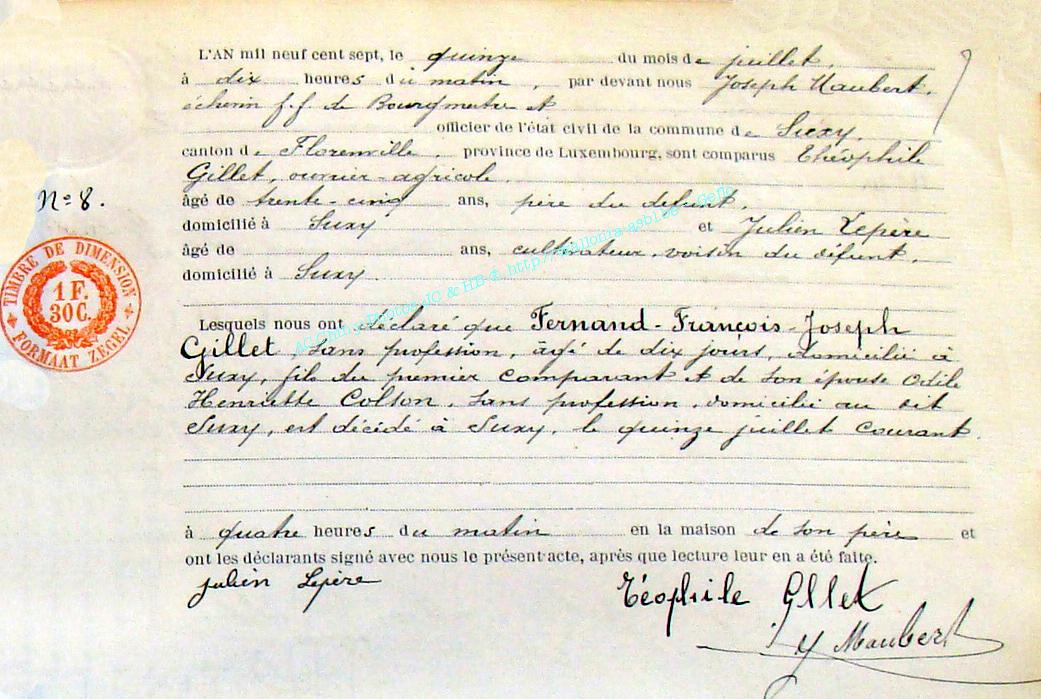 L'AN mil neuf cent sept, le quinze du mois de juillet,
à dix heures du matin, par devant nous Joseph Maubert,
échevin f.f. de Bourgmestre et
officier de l'état civil de la commune de Suxy,
canton de Florenville, province de Luxembourg, sont comparus Théophile
Gillet, ouvrier-agricole
Nº 8.
âgé de trente-cinq ans, père du défunt,
domicilié à Suxy et Julien Lepère
âgé de ans, cultivateur, voisin du défunt,
domicilié à Suxy
TIMBRE DE DIMENSION
1 F.
30 C.
FORMAAT ZEGEL
Lesquels nous ont déclaré que Fernand-François-Joseph
Gillet, sans profession, âgé de dix jours, domicilié à
Suxy, fils du premier comparant et de son épouse Odile
Henriette Colson, sans profession, domicilié au dit
Suxy, est décédé à Suxy, le quinze juillet courant
à quatre heures du matin en la maison de son père et
ont les déclarants signé avec nous le présent acte, après que lecture leur en a été faite.
Julien Lepère
Téophile Gllet
J Maubert